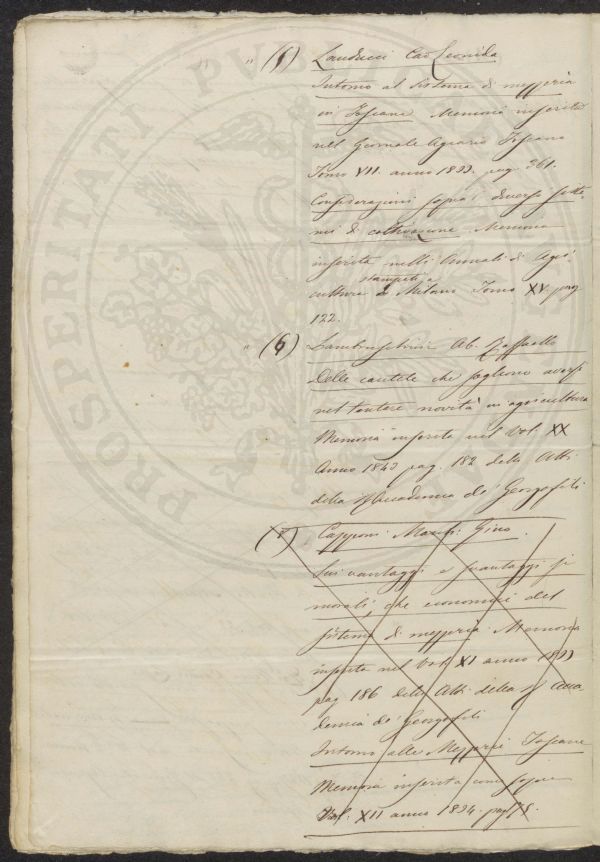 PROSPERITATI PUBLICAE AUGENDAE
" (5) Landucci Cav Leonida
Intorno al Sistema di mezzeria
in Toscana Memoria inserita
nel Giornale Agrario Toscano
Tomo VII. anno 1833. pag. 361.
Considerazioni sopra i diversi siste-
mi di coltivazione Memoria
inserita nelli Annali di Agri-
stampati a
cultura di Milano Tomo XV. pag
122.
" (6) Lambruschini Ab. Raffaello
Delle cautele che sogliono aversi
nel tentare novità in agricoltura
Memoria inserita nel Vol. XX
Anno 1842 pag. 182 delli Atti
della Accademia de' Georgofili
Capponi March. Gino.
Sui vantaggi e svantaggi sì
morali, che economici del
sistema di mezzeria Memoria
inserita nel Vol. XI anno 1833
pag 186 delli Atti della Acca
demia de' Georgofili
Intorno alle Mezzerie Toscane
Memoria inserita come sopra
Vol. XII anno 1834. pag 175.